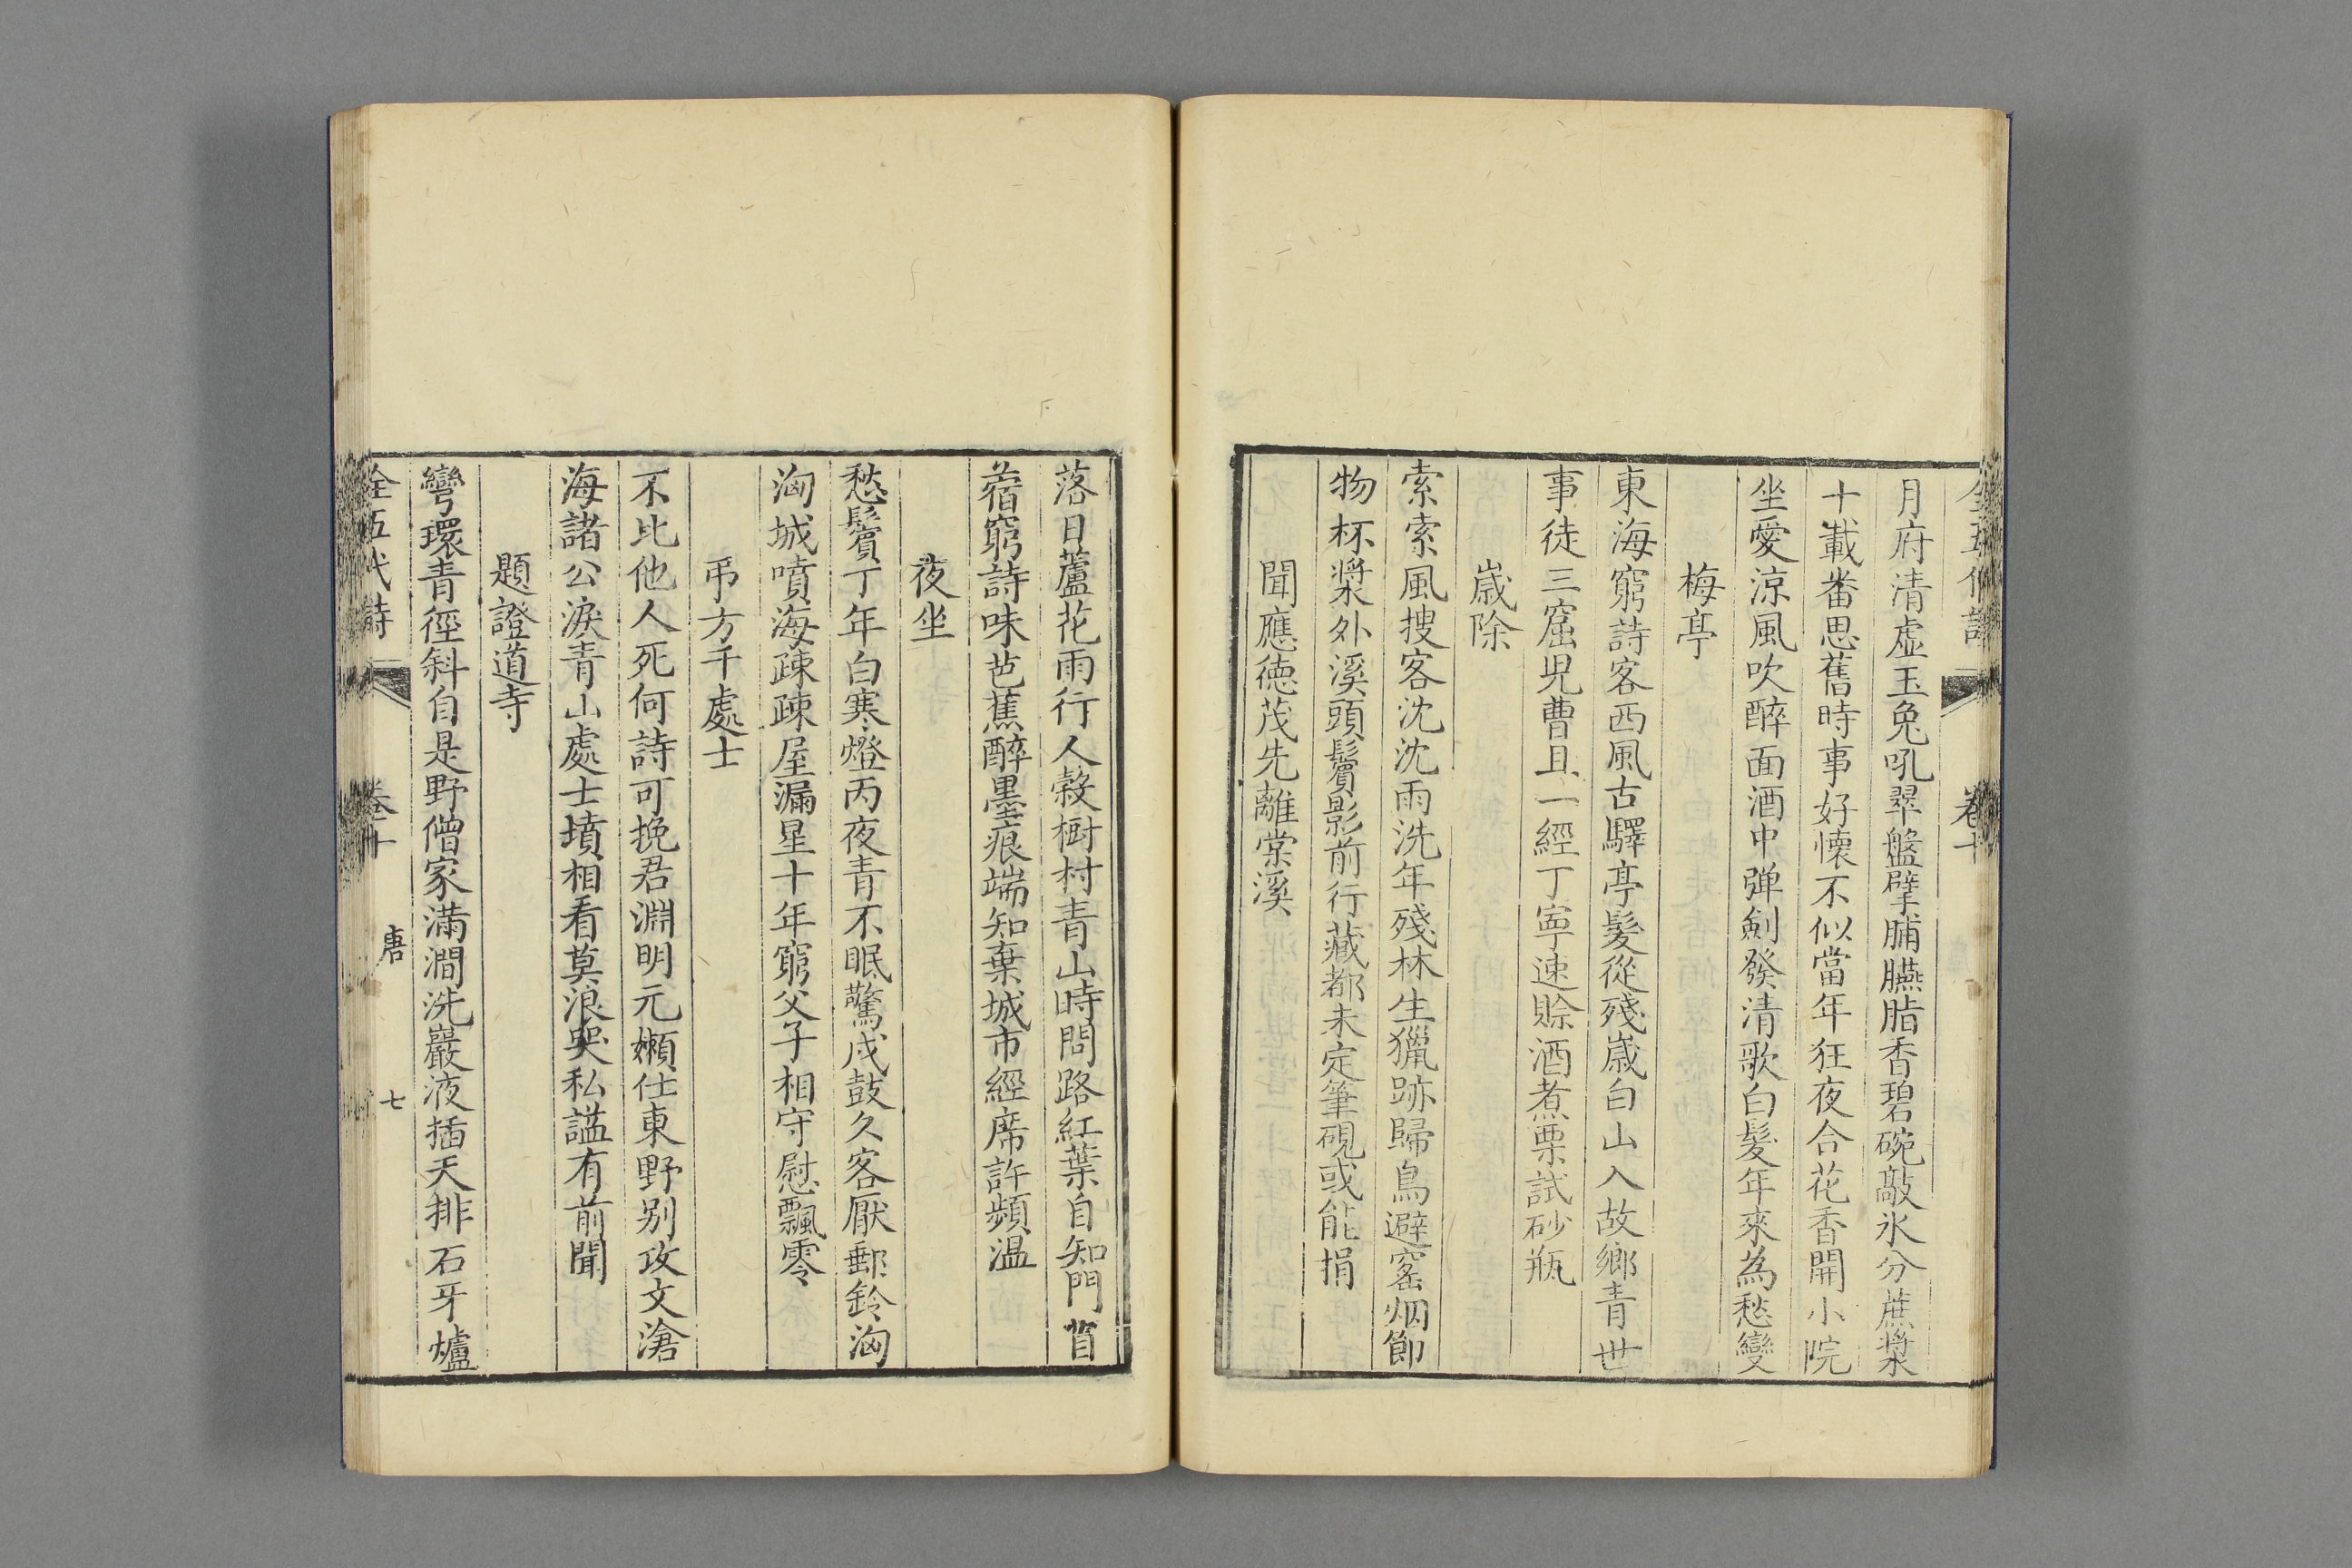 全五代詩 卷十
月府清虛玉兔吼翠盤擘脯臙脂香碧碗敲氷分蔗漿
十載番思舊時事好懷不似當年狂夜合花香開小院
坐愛涼風吹醉面酒中弹劍發清歌白髮年來為愁變
梅亭
東海窮詩客西風古驛亭髮從殘歲白山入故鄉青世
事徒三窟兒曹且一經丁寧速賒酒煮栗試砂瓶
歲除
索索風搜客沈沈雨洗年殘林生獵跡歸鳥避窰烟節
物杯漿外溪頭鬢影前行藏都未定筆硯或能捐
聞應德茂先離棠溪
落日蘆花雨行人榖樹村青山時問路紅葉自知門苜
蓿窮詩味芭蕉醉墨痕端知棄城市經席許頻温
夜坐
愁鬢丁年白寒燈丙夜青不眠驚戍鼓久客厭郵鈴洶
洶城噴海疎疎屋漏星十年窮父子相守慰飄零
弔方干處士
不比他人死何詩可挽君淵明元嬾仕東野别攻文滄
海諸公淚青山處士墳相看莫浪哭私謚有前聞
題證道寺
彎環青徑斜自是野僧家滿澗洗巖液插天排石牙爐
全五代詩 卷十 唐 七